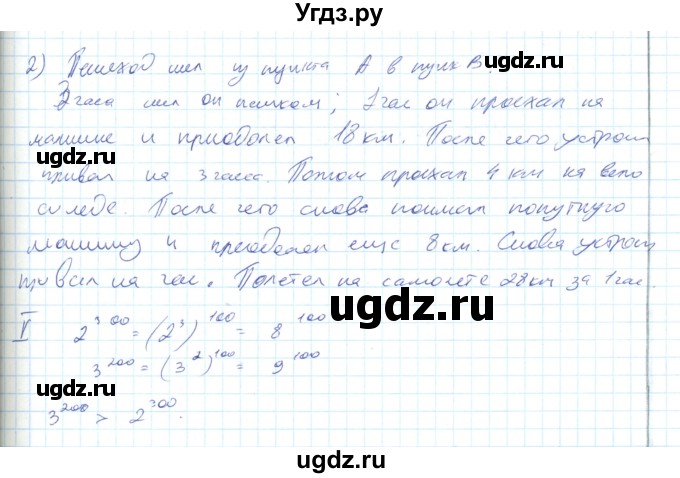 Угдз.ру
2) Пешеход шел из пункта А в пункт В.
3 часа шел он пешком; 1 час он проехал на
машине и приодолел 18 км. После чего устроил
привал на 3 часа. Потом проехал 4 км на вело
сипеде. После чего снова поймал попутную
машину и преодолел еще 8 км. Снова устроил
привал на час. Полетел на самолете 28 км за 1 час.
V 2^300 = (2^3)^100 = 8^100
3^200 = (3^2)^100 = 9^100
3^200 > 2^300.
ugdz.ru
ugdz.ru
ugdz.ru
ugdz.ru
ugdz.ru
ugdz.ru
ugdz.ru
ugdz.ru
ugdz.ru